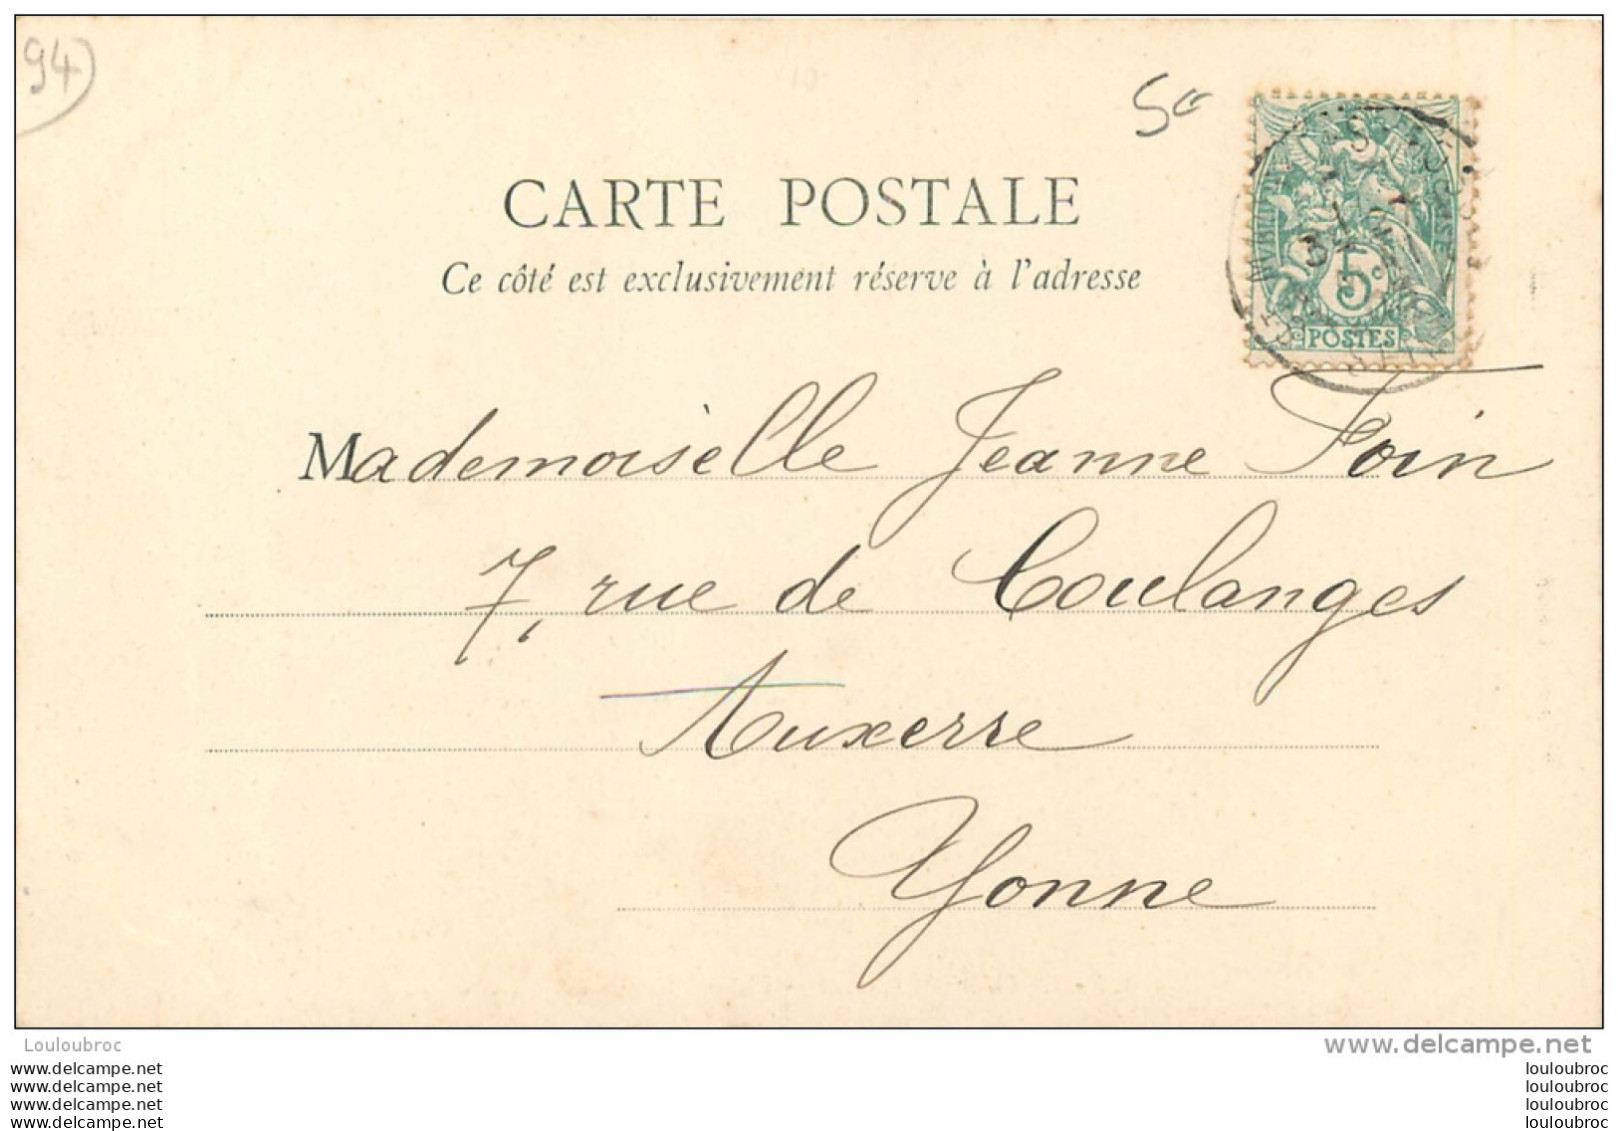 94
5
CARTE POSTALE
Ce côté est exclusivement réservé à l'adresse
5c
POSTES
Mademoiselle Jeanne Foin
7, rue de Coulanges
Auxerre
Yonne
Louloubroc
www.delcampe.net
www.delcampe.net
www.delcampe.net
www.delcampe.net
www.delcampe.net
louloubroc
louloubroc
louloubroc
louloubroc